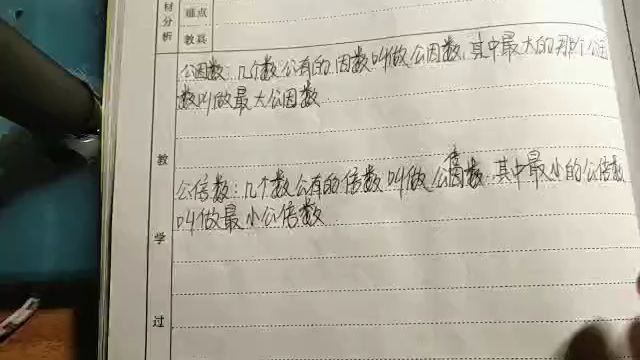 材分析
难点
教具
公因数:几个数公有的因数叫做公因数,其中最大的那个公因
数叫做最大公因数
教
公倍数:几个数公有的倍数叫做公倍数.其中最小的公倍数
叫做最小公倍数
学
过